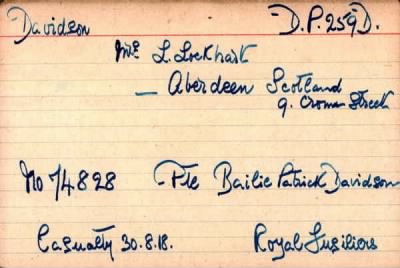 Davidson D.P. 259D.
Mrs L. Lockhart
— Aberdeen Scotland
9. Crown Street
No 74828 - Pte Bailie Patrick Davidson
Casualty 30.8.18. Royal Fusiliers